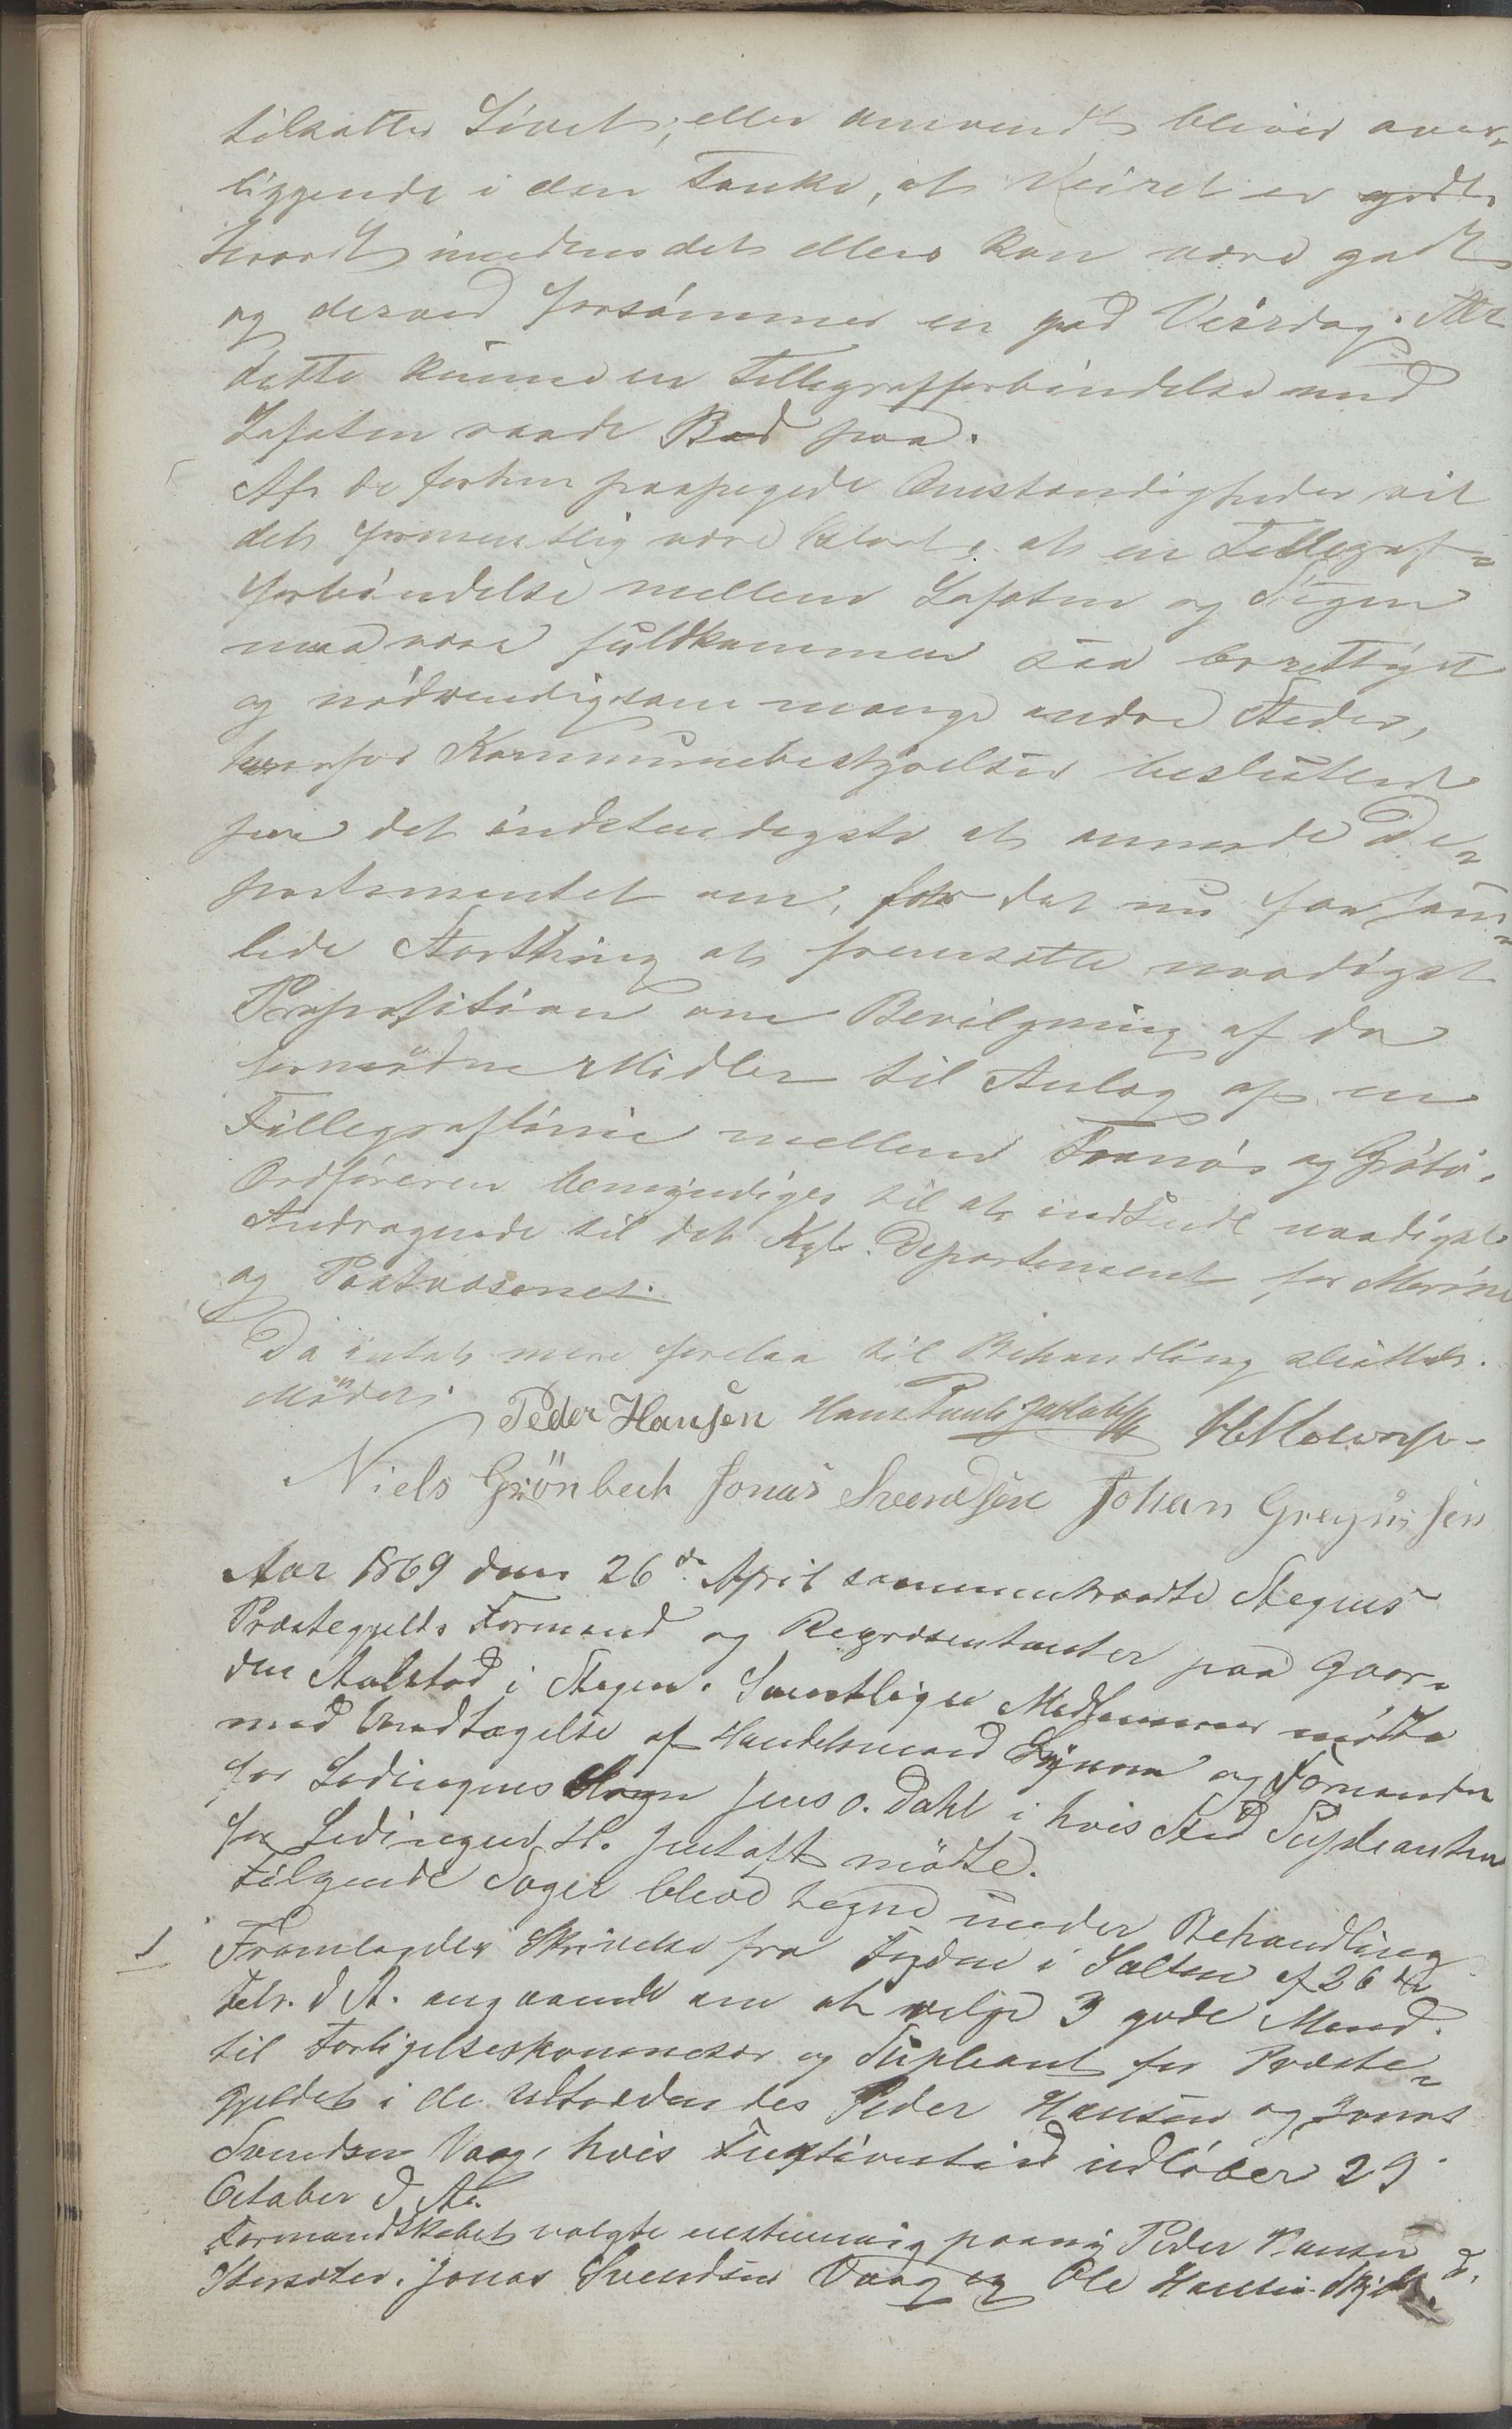 tilsætter Livet; eller omvendt bliver over-
liggende i den Tanke, at Veiret er godt
hvordt imedens det ellers kan være godt
og derved forsömmer en god Veirdag. Alt
dette kunne en Tellegrafforbindelse med
Lofoten raade Bod paa.
Af de forhen paapegede Omstændigheder vil
det formentlig være klart, at en Tellegraf-
forbindelse mellem Lofoten og Stegen
maa være fuldkommen saa berettiget
og nödvendig som mange andre Steder,
hvorfor Kommunebestyrelsen besluttede
paa det indstendigste at anmode De-
partementet om, for det nu forsam-
lede Storthing at fremsætte naadigst
Proposition om Bevilgning af de
fornödne Midler til Anlæg af en
Tellegraflinie mellem Tranö og Grötö.
Ordföreren bemyndiges til at indsende naadigst
Andragende til det Kgl. Departement for Marine
og Postvæsenet.
Da intet mere forelaa til Behandling sluttedes
Mödet.
Peder Hansen Hans Pauls Jakobss.
Niels Grönbech Jonas Svendsen Johan Gregussen
Aar 1869 den 26de April sammentraadte Stegens
Præstegjelds Formænd og Representanter paa Gaar-
den Aalstad i Stegen. Samtlige Medlemmer mötte
med Undtagelse af Handelsmand og Formanden
for Ledingens Sogn Jens O. Dahl i hvis Sted Supleanten
for Ledingen H. Justaft mötte.
Fölgende Sager bleve tagne under Behandling
1 Fremlagdes Skrivelse fra Fogden i Salten af 26de
Febr. d. A. angaaende om at velge 3 gode Mænd
til Forligelseskommisær og Supleant for Præste-
gjeldet i de udtrædendes Peder Hansen og Jonas
Svendsen Vaag, hvis Funktionstid udlöber 29
October d. A.
Formandskabet valgte enstemmig paany Peder Hansen
Jonas Svendsen Vaag og Ole Hansen